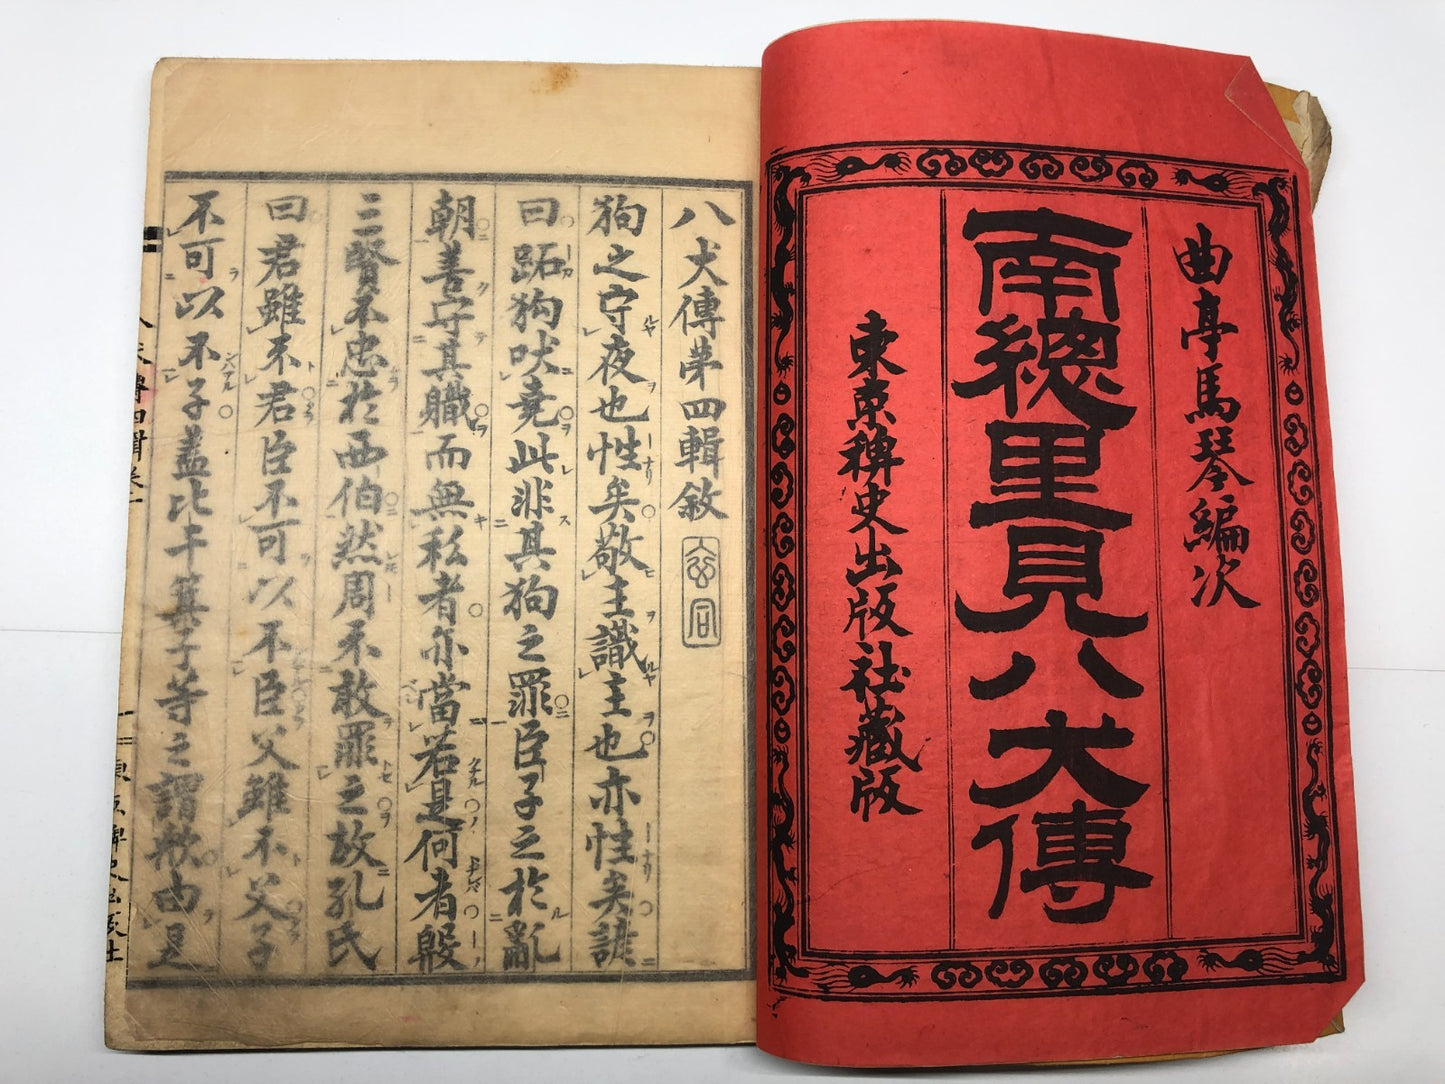 曲亭馬琴編次
南總里見八犬傳
東京稗史出版社藏版
八犬傳第四輯敘
狗之守夜也性矣敬主識主也亦性矣諺
曰跖狗吠堯此非其狗之罪臣子之於亂
朝善守其職而無私者亦當若是何者殷
三賢不忠於西伯然周不敢罪之故孔氏
曰君雖不君臣不可以不臣父雖不父子
不可以不子蓋比干箕子等之謂歟由是